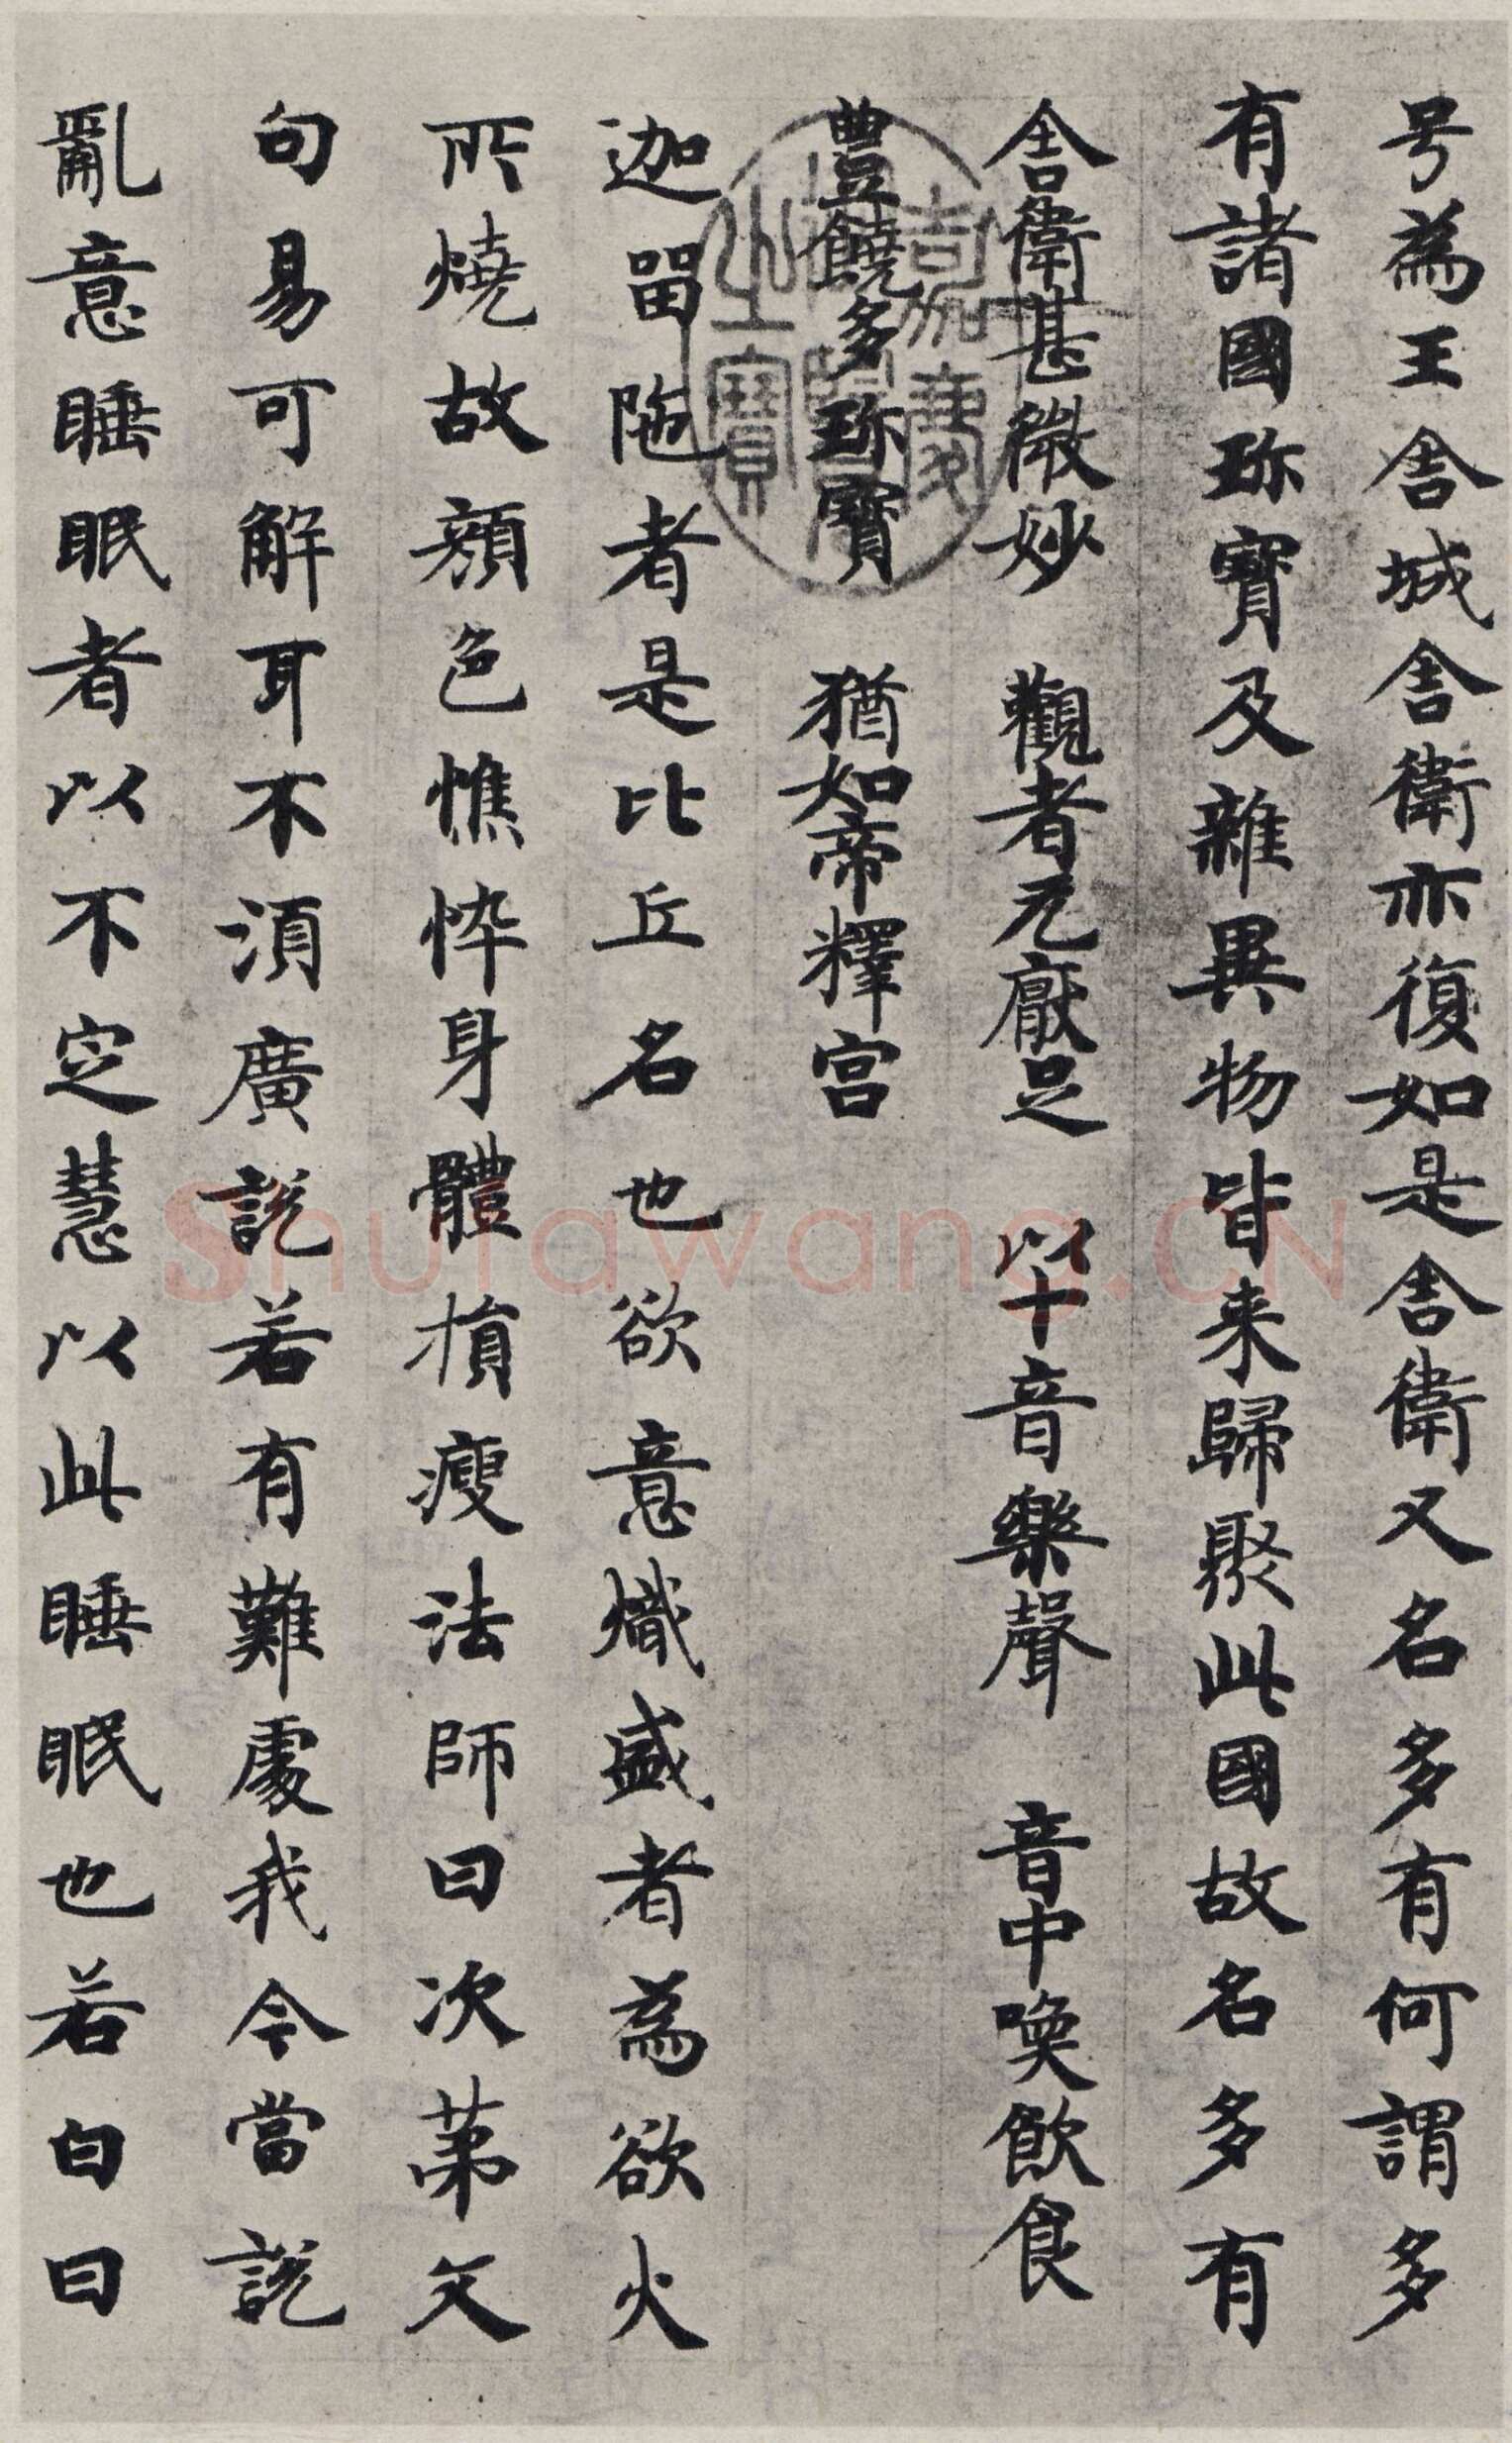 号為王舎城舎衛亦復如是舎衛又名多有何謂多
有諸國珎寶及雜異物皆来歸聚此國故名多有
舎衛甚微妙 觀者无厭足 以十音樂聲 音中喚飲食
豊饒多珎寶 猶如帝釋宫
迦留陁者是比丘名也欲意熾盛者為欲火
所燒故顔色憔悴身體損瘦法師曰次苐文
句易可解耳不湏廣説若有難處我今當説
亂意睡眠者以不定慧以此睡眠也若白曰
嘉慶御覽之寶
Shufawang.CN